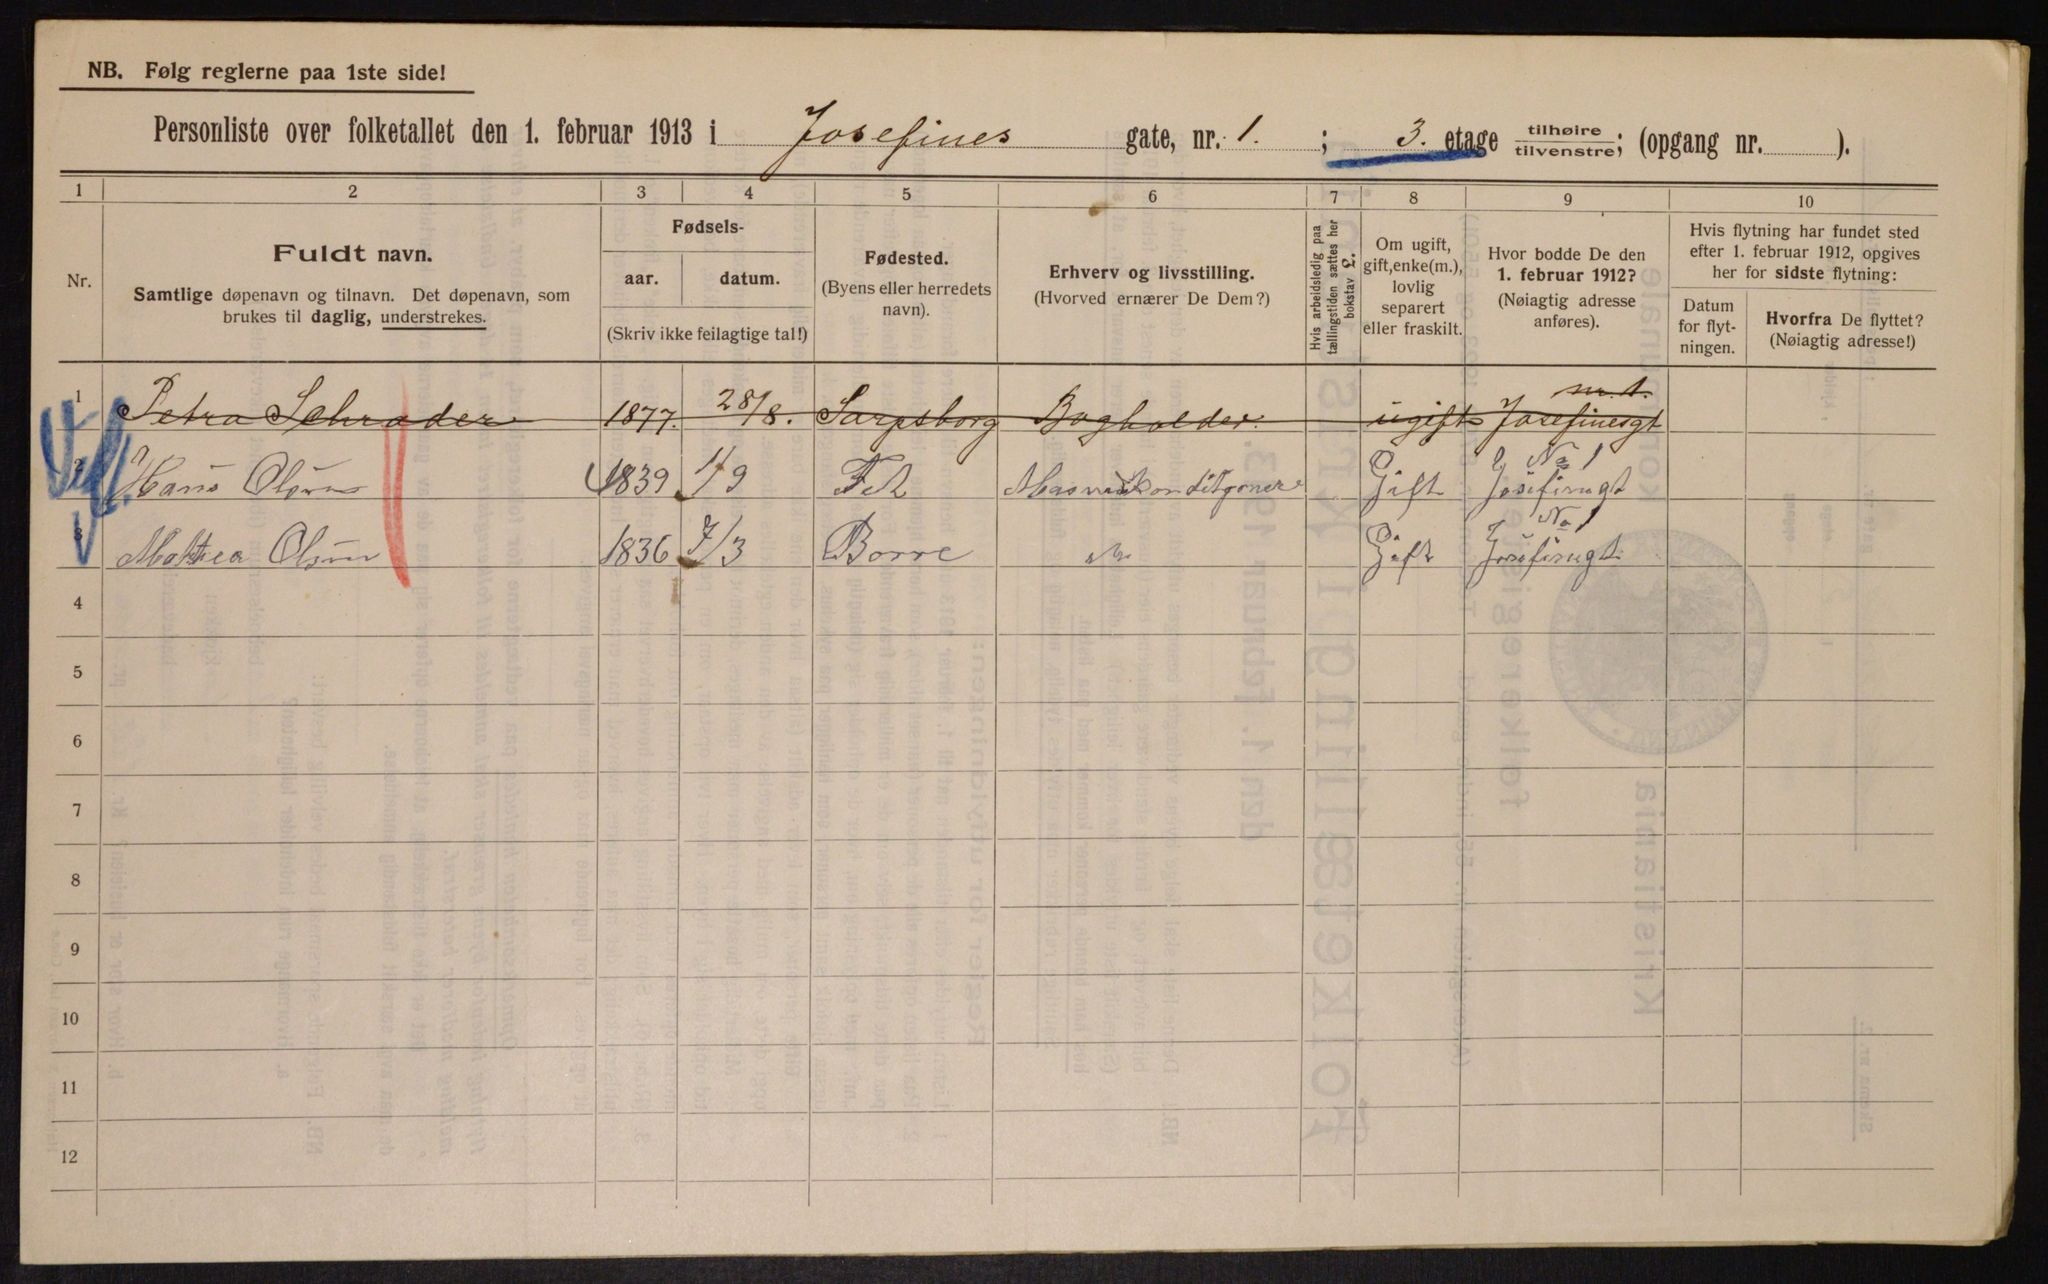 NB. Følg reglerne paa 1ste side!
Personliste over folketallet den 1. februar 1913 i Josefines gate, nr. 1. ; 3. etage tilhøire tilvenstre; (opgang nr. ).
1 2 3 4 5 6 7 8 9 10
Nr.
Fuldt navn.
Samtlige døpenavn og tilnavn. Det døpenavn, som
brukes til daglig, understrekes.
Fødsels-
aar. datum.
(Skriv ikke feilagtige tal!)
Fødested.
(Byens eller herredets
navn).
Erhverv og livsstilling.
(Hvorved ernærer De Dem?)
Hvis arbeidsledig paa
tællingstiden sættes her
bokstav L.
Om ugift,
gift, enke(m.),
lovlig
separert
eller fraskilt.
Hvor bodde De den
1. februar 1912?
(Nøiagtig adresse
anføres).
Hvis flytning har fundet sted
efter 1. februar 1912, opgives
her for sidste flytning:
Datum
for flyt-
ningen.
Hvorfra De flyttet?
(Nøiagtig adresse!)
1 Petra Schrader 1877. 28/8. Sarpsborg Bogholder. ugift Josefinesgt nr. 1.
2 Hans Olsen 1839 1/9 Fet Gift No 1
3 Mathea Olsen 1836 7/3 Borre Gift No 1
4
5
6
7
8
9
10
11
12